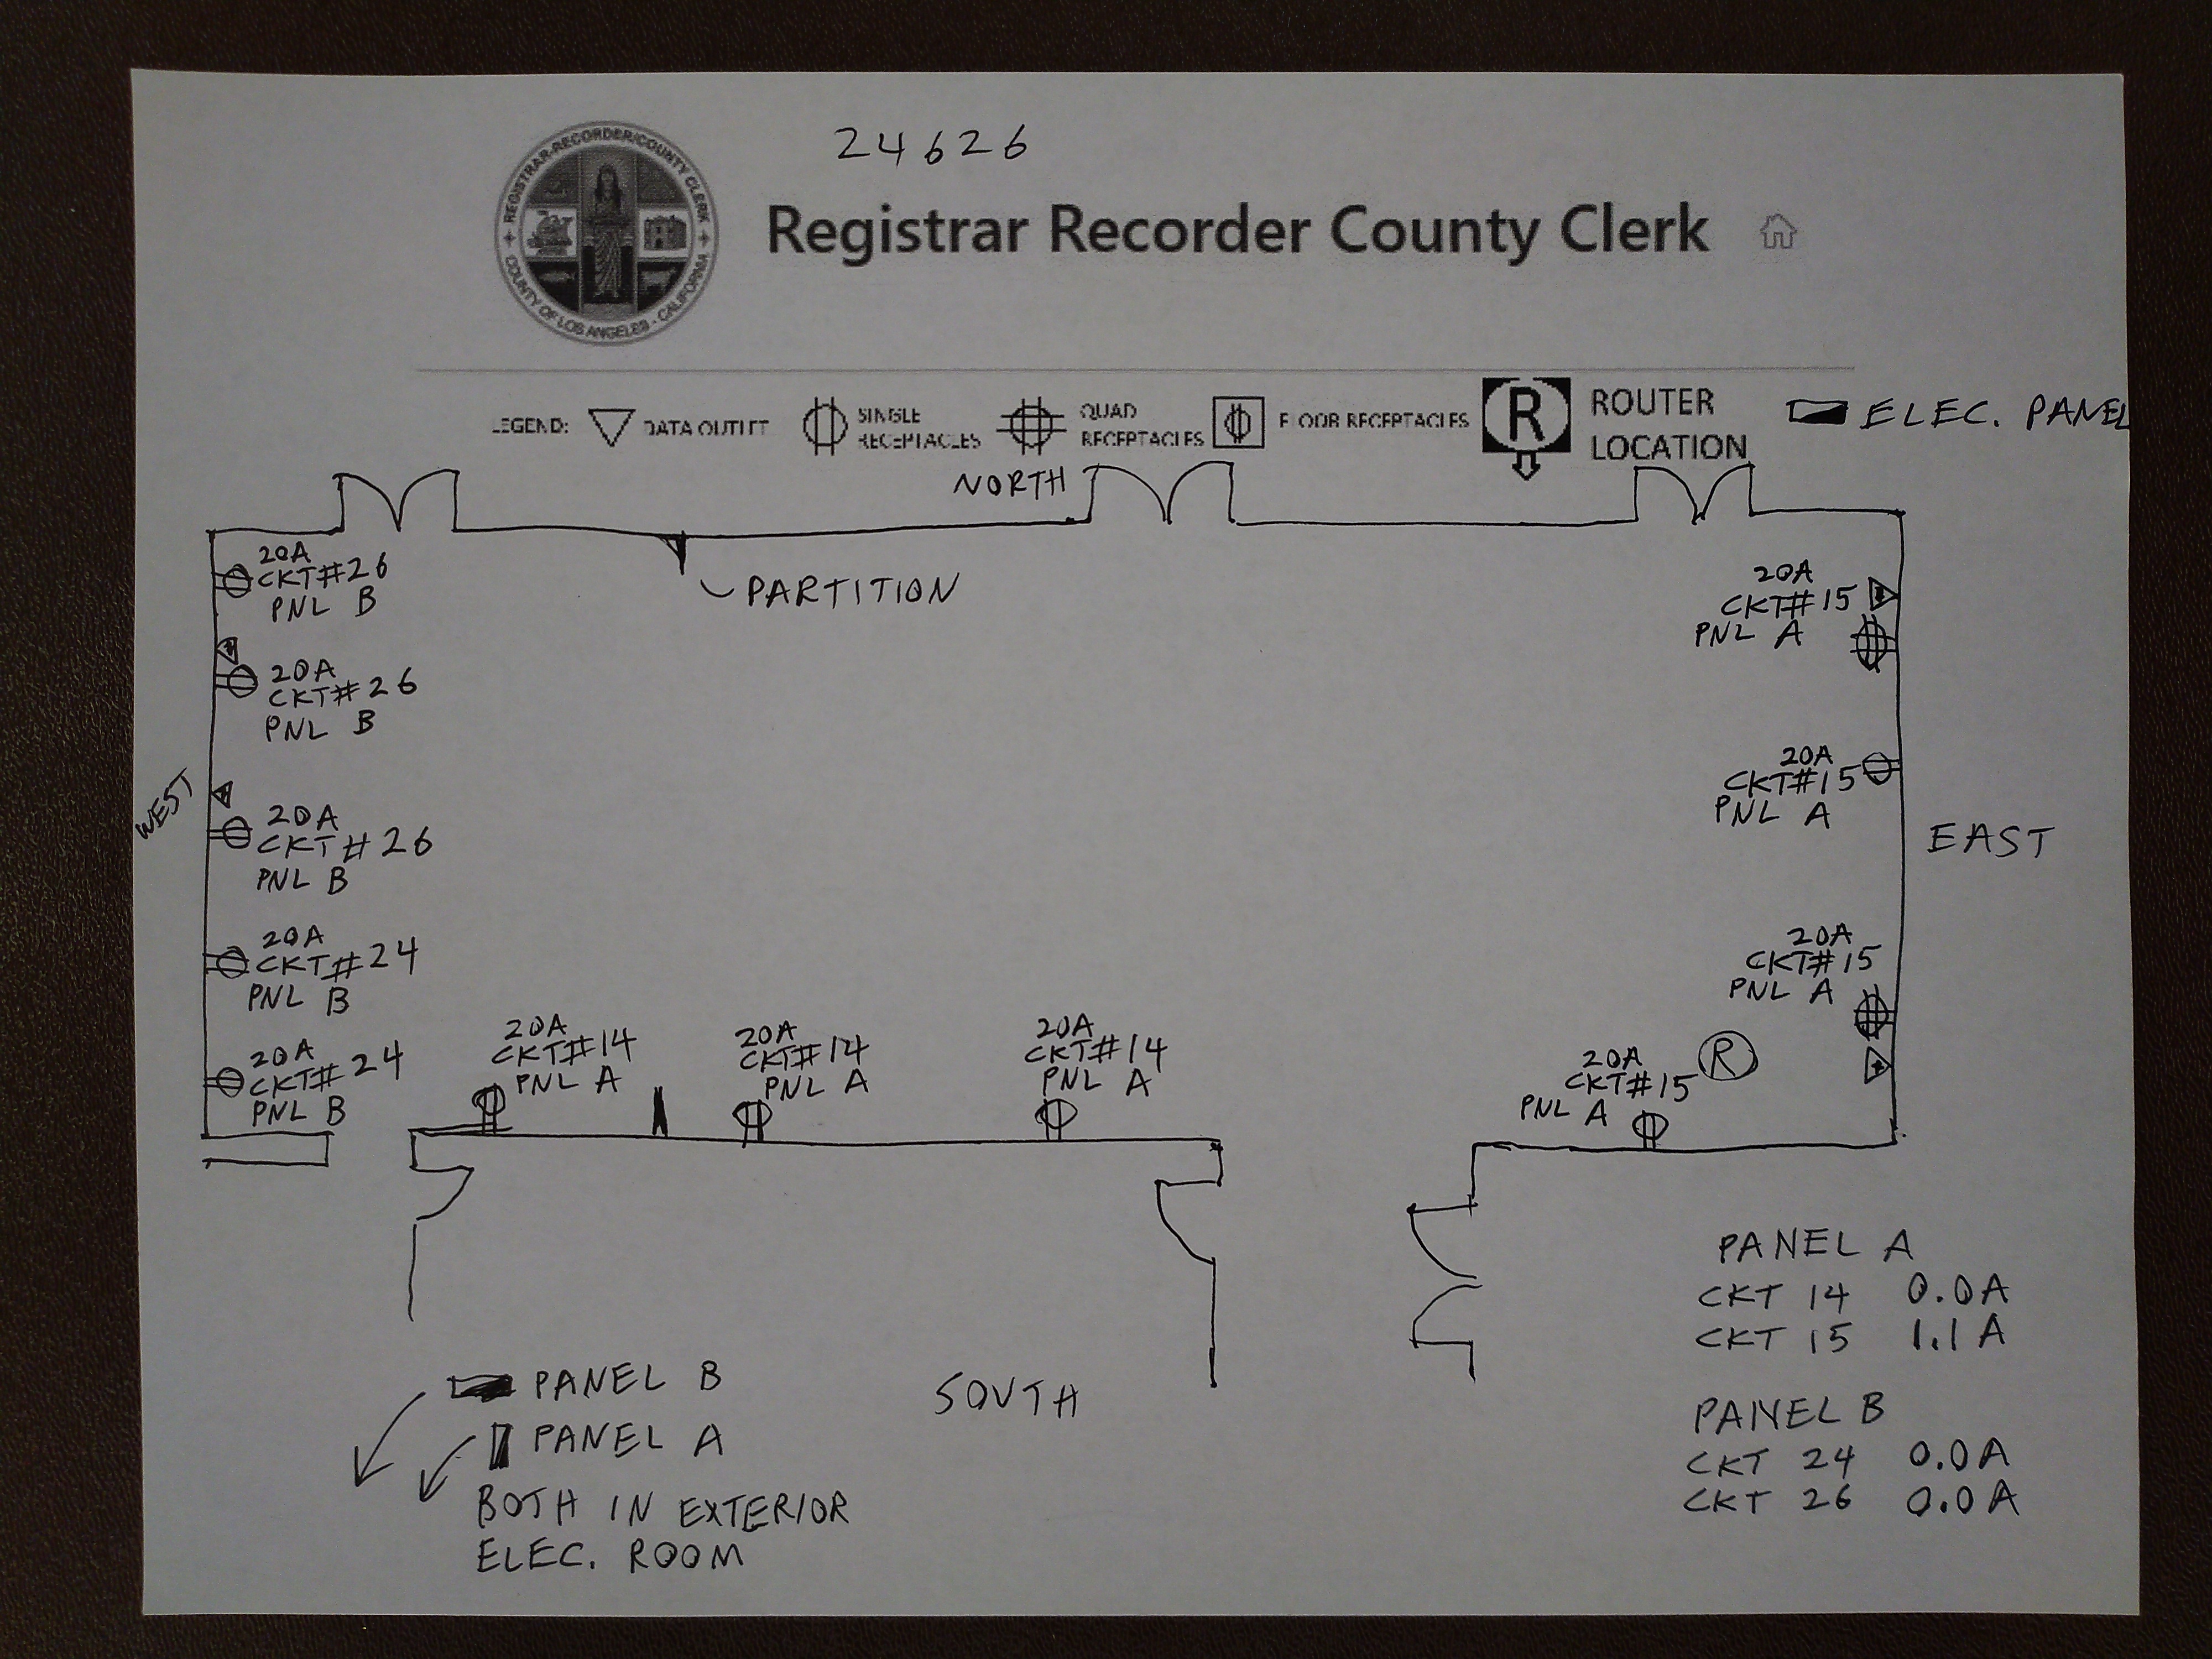 24626
REGISTRAR-RECORDER/COUNTY CLERK
COUNTY OF LOS ANGELES - CALIFORNIA
Registrar Recorder County Clerk
LEGEND: DATA OUTLET SINGLE RECEPTACLES QUAD RECEPTACLES FLOOR RECEPTACLES R ROUTER LOCATION ELEC. PANEL
NORTH
PARTITION
20A
CKT#26
PNL B
20A
CKT#26
PNL B
WEST
20A
CKT#26
PNL B
20A
CKT#24
PNL B
20A
CKT#24
PNL B
20A
CKT#14
PNL A
20A
CKT#14
PNL A
20A
CKT#14
PNL A
20A
CKT#15
PNL A
20A
CKT#15
PNL A
EAST
20A
CKT#15
PNL A
R
20A
CKT#15
PNL A
PANEL B
PANEL A
BOTH IN EXTERIOR
ELEC. ROOM
SOUTH
PANEL A
CKT 14 0.0A
CKT 15 1.1A
PANEL B
CKT 24 0.0A
CKT 26 0.0A